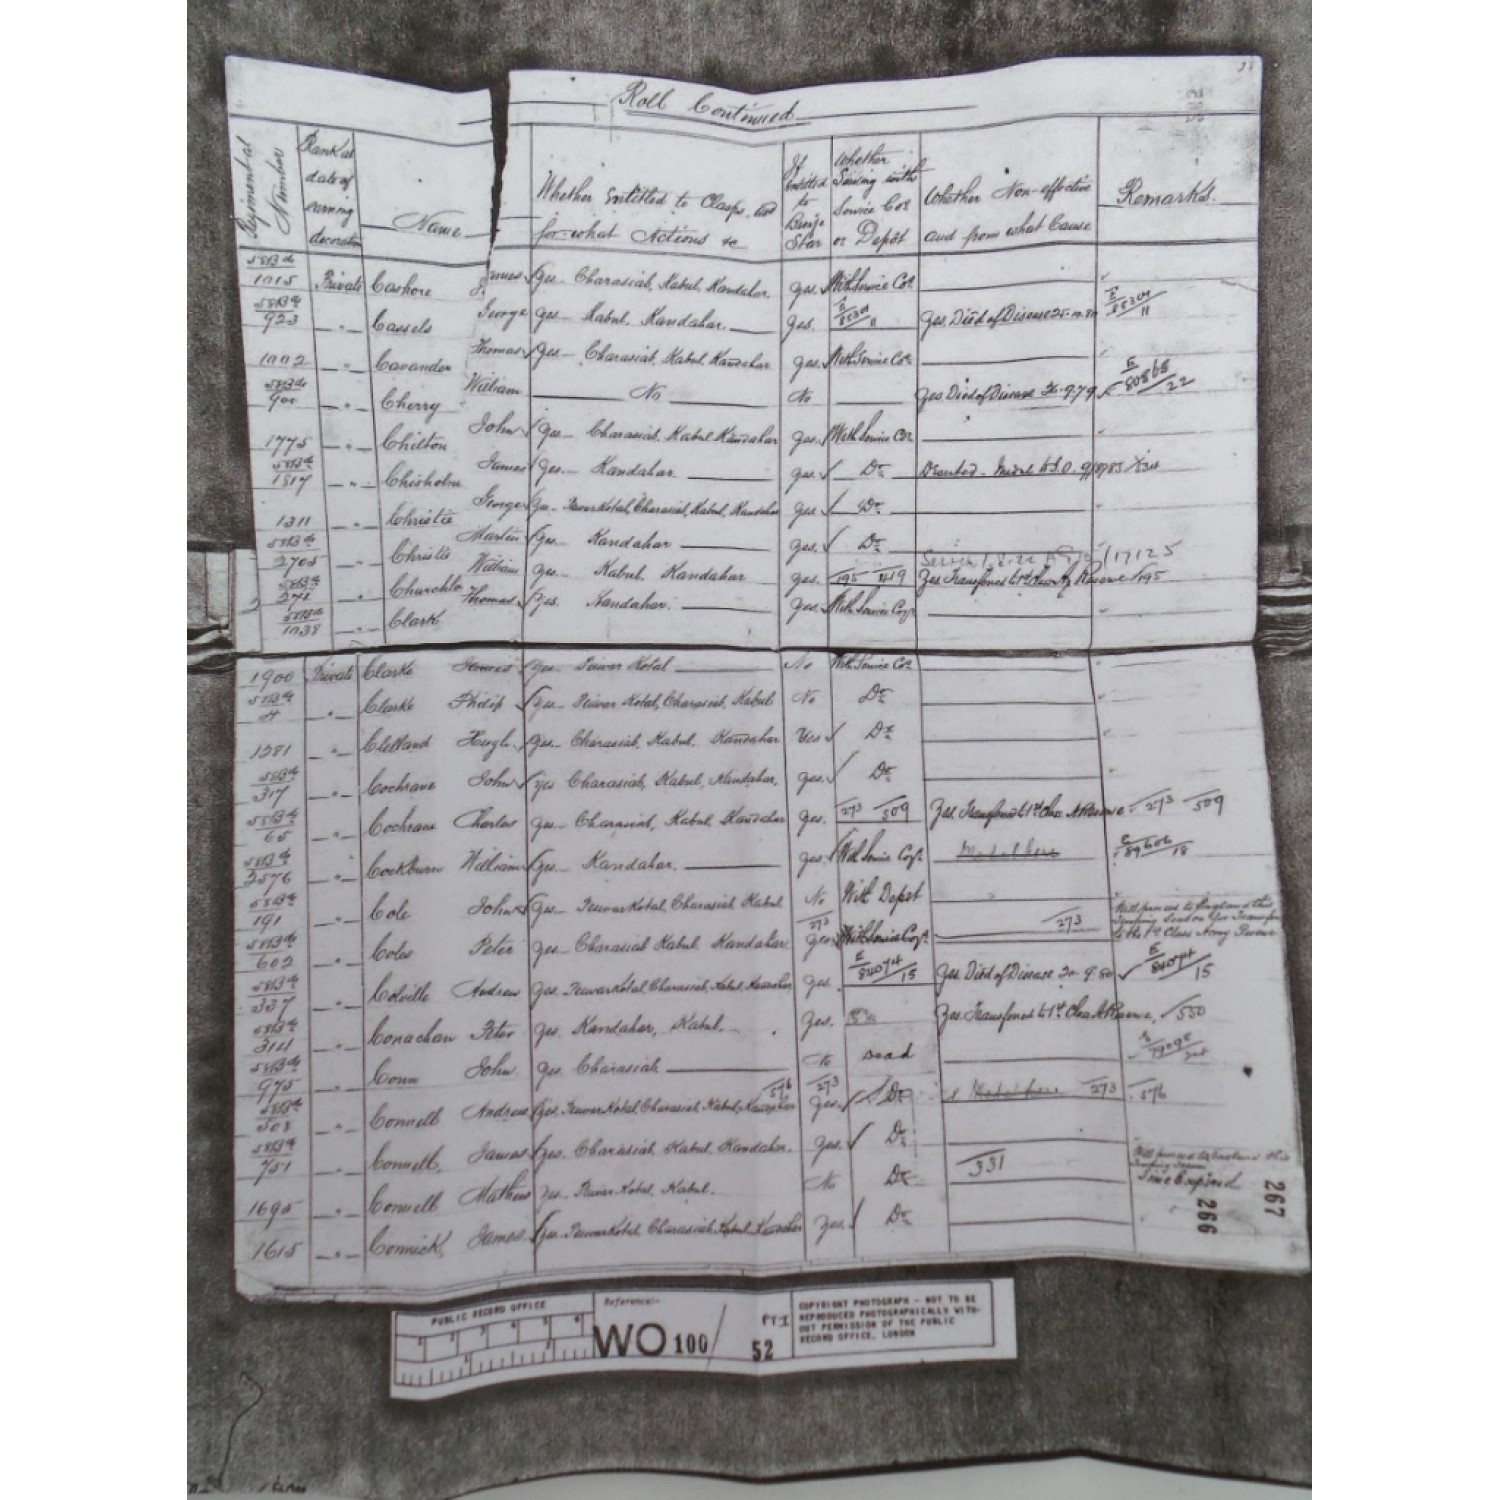 Roll Continued
Regimental Number
Rank at date of earning decoration
Name
Whether Entitled to Clasps, and for what Actions &c
If entitled to Bronze Star
Whether Serving with Service Cos. or Depôt
Whether Non-effective and from what Cause
Remarks.
58Bde 1015 Private Cashore James Yes Charasiab, Kabul, Kandahar. Yes. With Service Cos.
58Bde 923 " Cassels George Yes Kabul, Kandahar. Yes. E/85304/11 Yes. Died of Disease E/85304/11
1002 " Cavander Thomas Yes Charasiab, Kabul, Kandahar Yes With Service Cos.
58Bde " Cherry William No No Yes Died of Disease E/80868/22
1775 " Chilton John Yes Charasiab, Kabul, Kandahar Yes With Service Cos
58Bde 1817 " Chisholm James Yes Kandahar. Yes Do. Deserted.
1311 " Christie George Yes Peiwar Kotal, Charasiab, Kabul, Kandahar Yes Do.
58Bde 2705 " Christie Martin Yes Kandahar Yes. Do. 17125
58Bde 271 " William Yes Kabul, Kandahar Yes. 195 419 Yes Transferred to 1st Army Reserve /195
58Bde 1038 " Clark Thomas Yes. Kandahar. Yes With Service Cos.
1900 Private Clarke James Yes Peiwar Kotal No With Service Cos.
58Bde " Clarke Philip Yes Peiwar Kotal, Charasiab, Kabul No Do.
1381 " Clelland Hugh Yes Charasiab, Kabul, Kandahar Yes Do.
58Bde 317 " Cochrane John Yes Charasiab, Kabul, Kandahar. Yes Do.
58Bde 65 " Cochrane Charles Yes Charasiab, Kabul, Kandahar Yes. 273 509 Yes. Transferred to 1st Class A Reserve 273 509
58Bde 2576 " Cockburn William Yes Kandahar. Yes With Service Cos. Medal here E/89606/18
58Bde 191 " Cole John Yes Peiwar Kotal, Charasiab, Kabul No With Depot
58Bde 602 " Coles Peter Yes Charasiab, Kabul, Kandahar. 273 Yes With Service Cos. 273 Will proceed to England this Trooping Season for Transfer to the 1st Class Army Reserve
58Bde 337 " Colville Andrew Yes. Peiwar Kotal, Charasiab, Kabul, Kandahar Yes. E/84074/15 Yes. Died of Disease 30.9.80 E/84074/15
58Bde " Conachan Peter Yes. Kandahar, Kabul. Yes. Yes. Transferred to 1st Class A Reserve, /550
58Bde 975 " Conn John Yes. Charasiab. No Dead
58Bde 508 " Connell Andrew Yes. Peiwar Kotal, Charasiab, Kabul, Kandahar 576 273 Yes. Do. Medal here 273 576
58Bde 751 " Connell. James Yes. Charasiab, Kabul, Kandahar. Yes Do.
1695 " Connell Mathew Yes. Peiwar Kotal, Kabul. No Do. 331 Will proceed to England this Trooping Season Time Expired
1615 " Connick, James. Yes. Peiwar Kotal, Charasiab, Kabul, Kandahar Yes. Do.
266
267
PUBLIC RECORD OFFICE
1 2 3 4 5 6
Reference:-
WO 100/52 PT 1
COPYRIGHT PHOTOGRAPH - NOT TO BE
REPRODUCED PHOTOGRAPHICALLY WITH-
OUT PERMISSION OF THE PUBLIC
RECORD OFFICE, LONDON